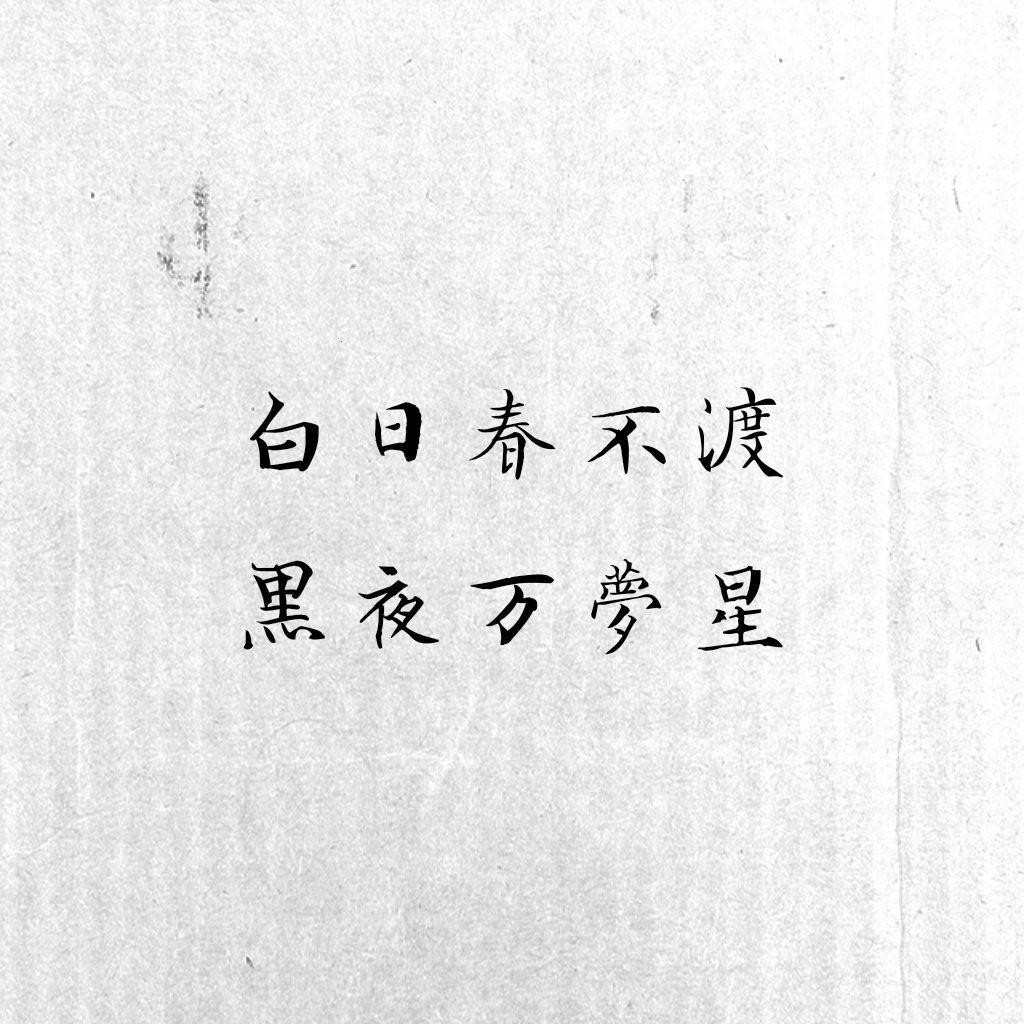 白日春不渡
黒夜万夢星